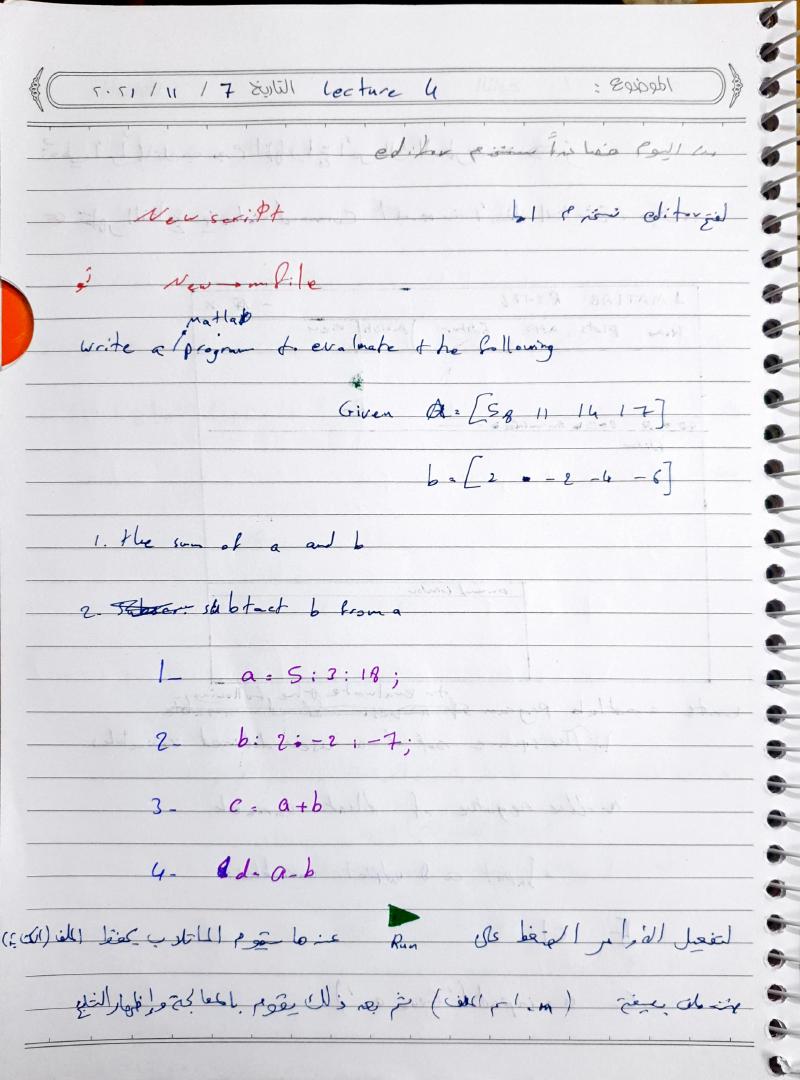 الموضوع : lecture 4 التاريخ 7 / ١١ / ٢٠٢١
من اليوم فصاعداً سنستخدم editor
لفتح editor نستخدم اما New script
New → m file
أو
write a matlab program to evaluate the following
Given a = [5 8 11 14 17]
b = [2 0 -2 -4 -6]
1. the sum of a and b
2. subtract b from a
1- a = 5:3:18;
2- b= 2:-2:-7;
3- c= a+b
4- d= a-b
لتفعيل الأوامر اضغط على Run عندها سيقوم الماتلاب بحفظ الملف
بصيغة (اسم الملف.m) ثم بعد ذلك يقوم بالمعالجة وإظهار النتائج